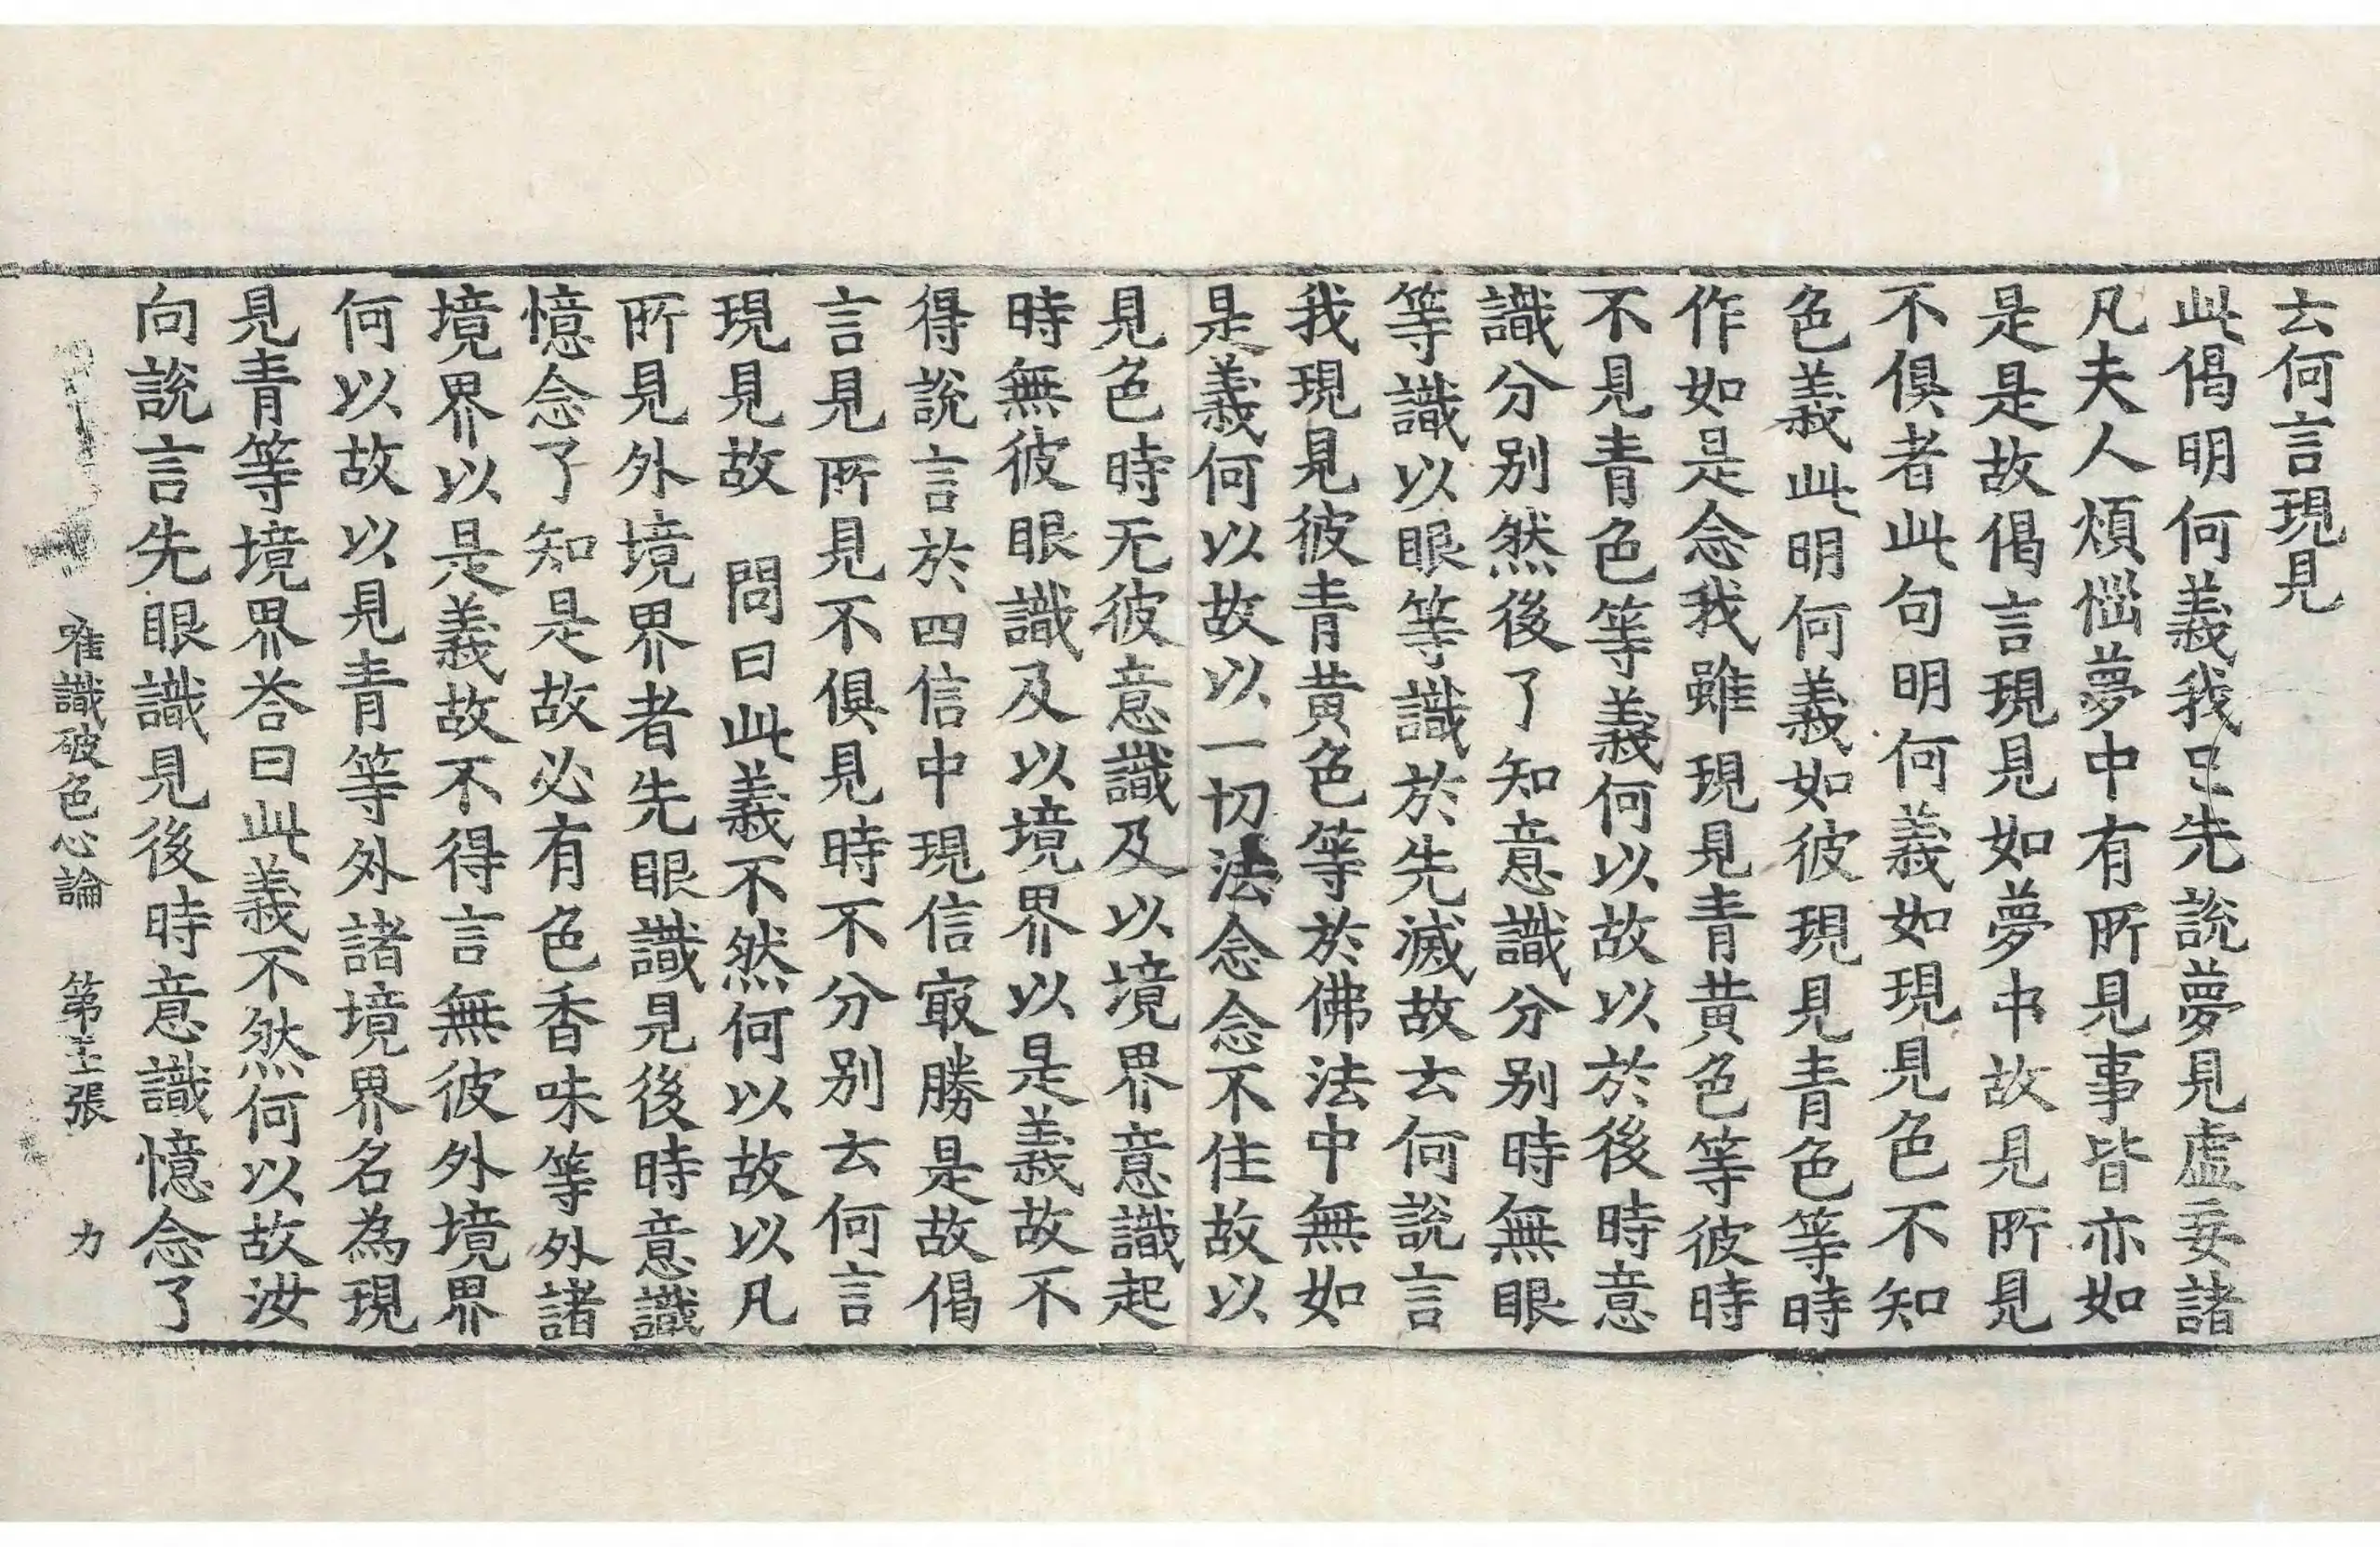 去何言現見
此偈明何義我已先說夢見虛妄諸
凡夫人煩惱夢中有所見事皆亦如
是是故偈言現見如夢中故見所見
不俱者此句明何義如現見色不知
色義此明何義如彼現見青色等時
作如是念我雖現見青黃色等彼時
不見青色等義何以故以於後時意
識分別然後了知意識分別時無眼
等識以眼等識於先滅故去何說言
我現見彼青黃色等於佛法中無如
是義何以故以一切法念念不住故以
見色時无彼意識及以境界意識起
時無彼眼識及以境界以是義故不
得說言於四信中現信㝡勝是故偈
言見所見不俱見時不分別去何言
現見故　問曰此義不然何以故以凡
所見外境界者先眼識見後時意識
憶念了知是故必有色香味等外諸
境界以是義故不得言無彼外境界
何以故以見青等外諸境界名為現
見青等境界荅曰此義不然何以故汝
向說言先眼識見後時意識憶念了
唯識破色心論　第　張　力